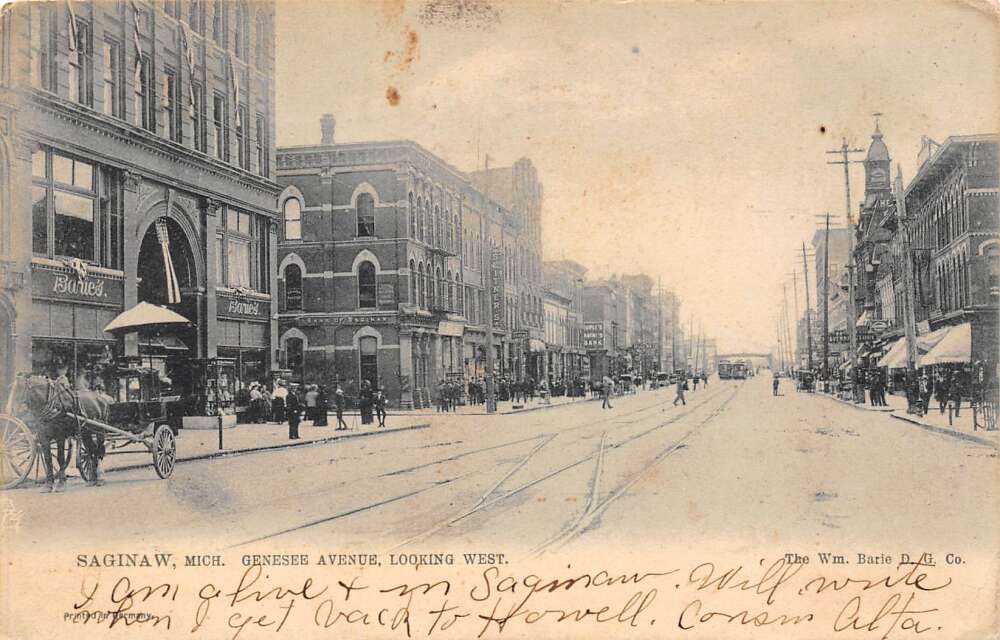 Barie's.
Barie's.
PEOPLE'S
SAVINGS
BANK
SAGINAW, MICH. GENESEE AVENUE, LOOKING WEST.
The Wm. Barie D. G. Co.
I am alive & in Saginaw. Will write
Printed in Germany.
when I get back to Howell. Consin Alta.